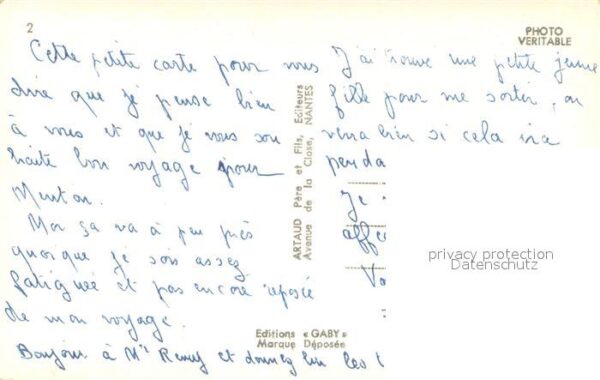 2
PHOTO
VERITABLE
Cette petite carte pour vous
dire que je pense bien
à vous et que je vous sou
haite bon voyage pour
Menton.
Moi ça va à peu près
quoique je sois assez
fatiguée et pas encore reposée
de mon voyage.
Bonjour à Mr Remy et donnez lui les
J'ai trouvé une petite jeune
fille pour me sortir, on
verra bien si cela ira
penda
Je
affe
Vo
ARTAUD Père et Fils, Editeurs
Avenue de la Close, NANTES
Editions « GABY »
Marque Déposée
privacy protection
Datenschutz